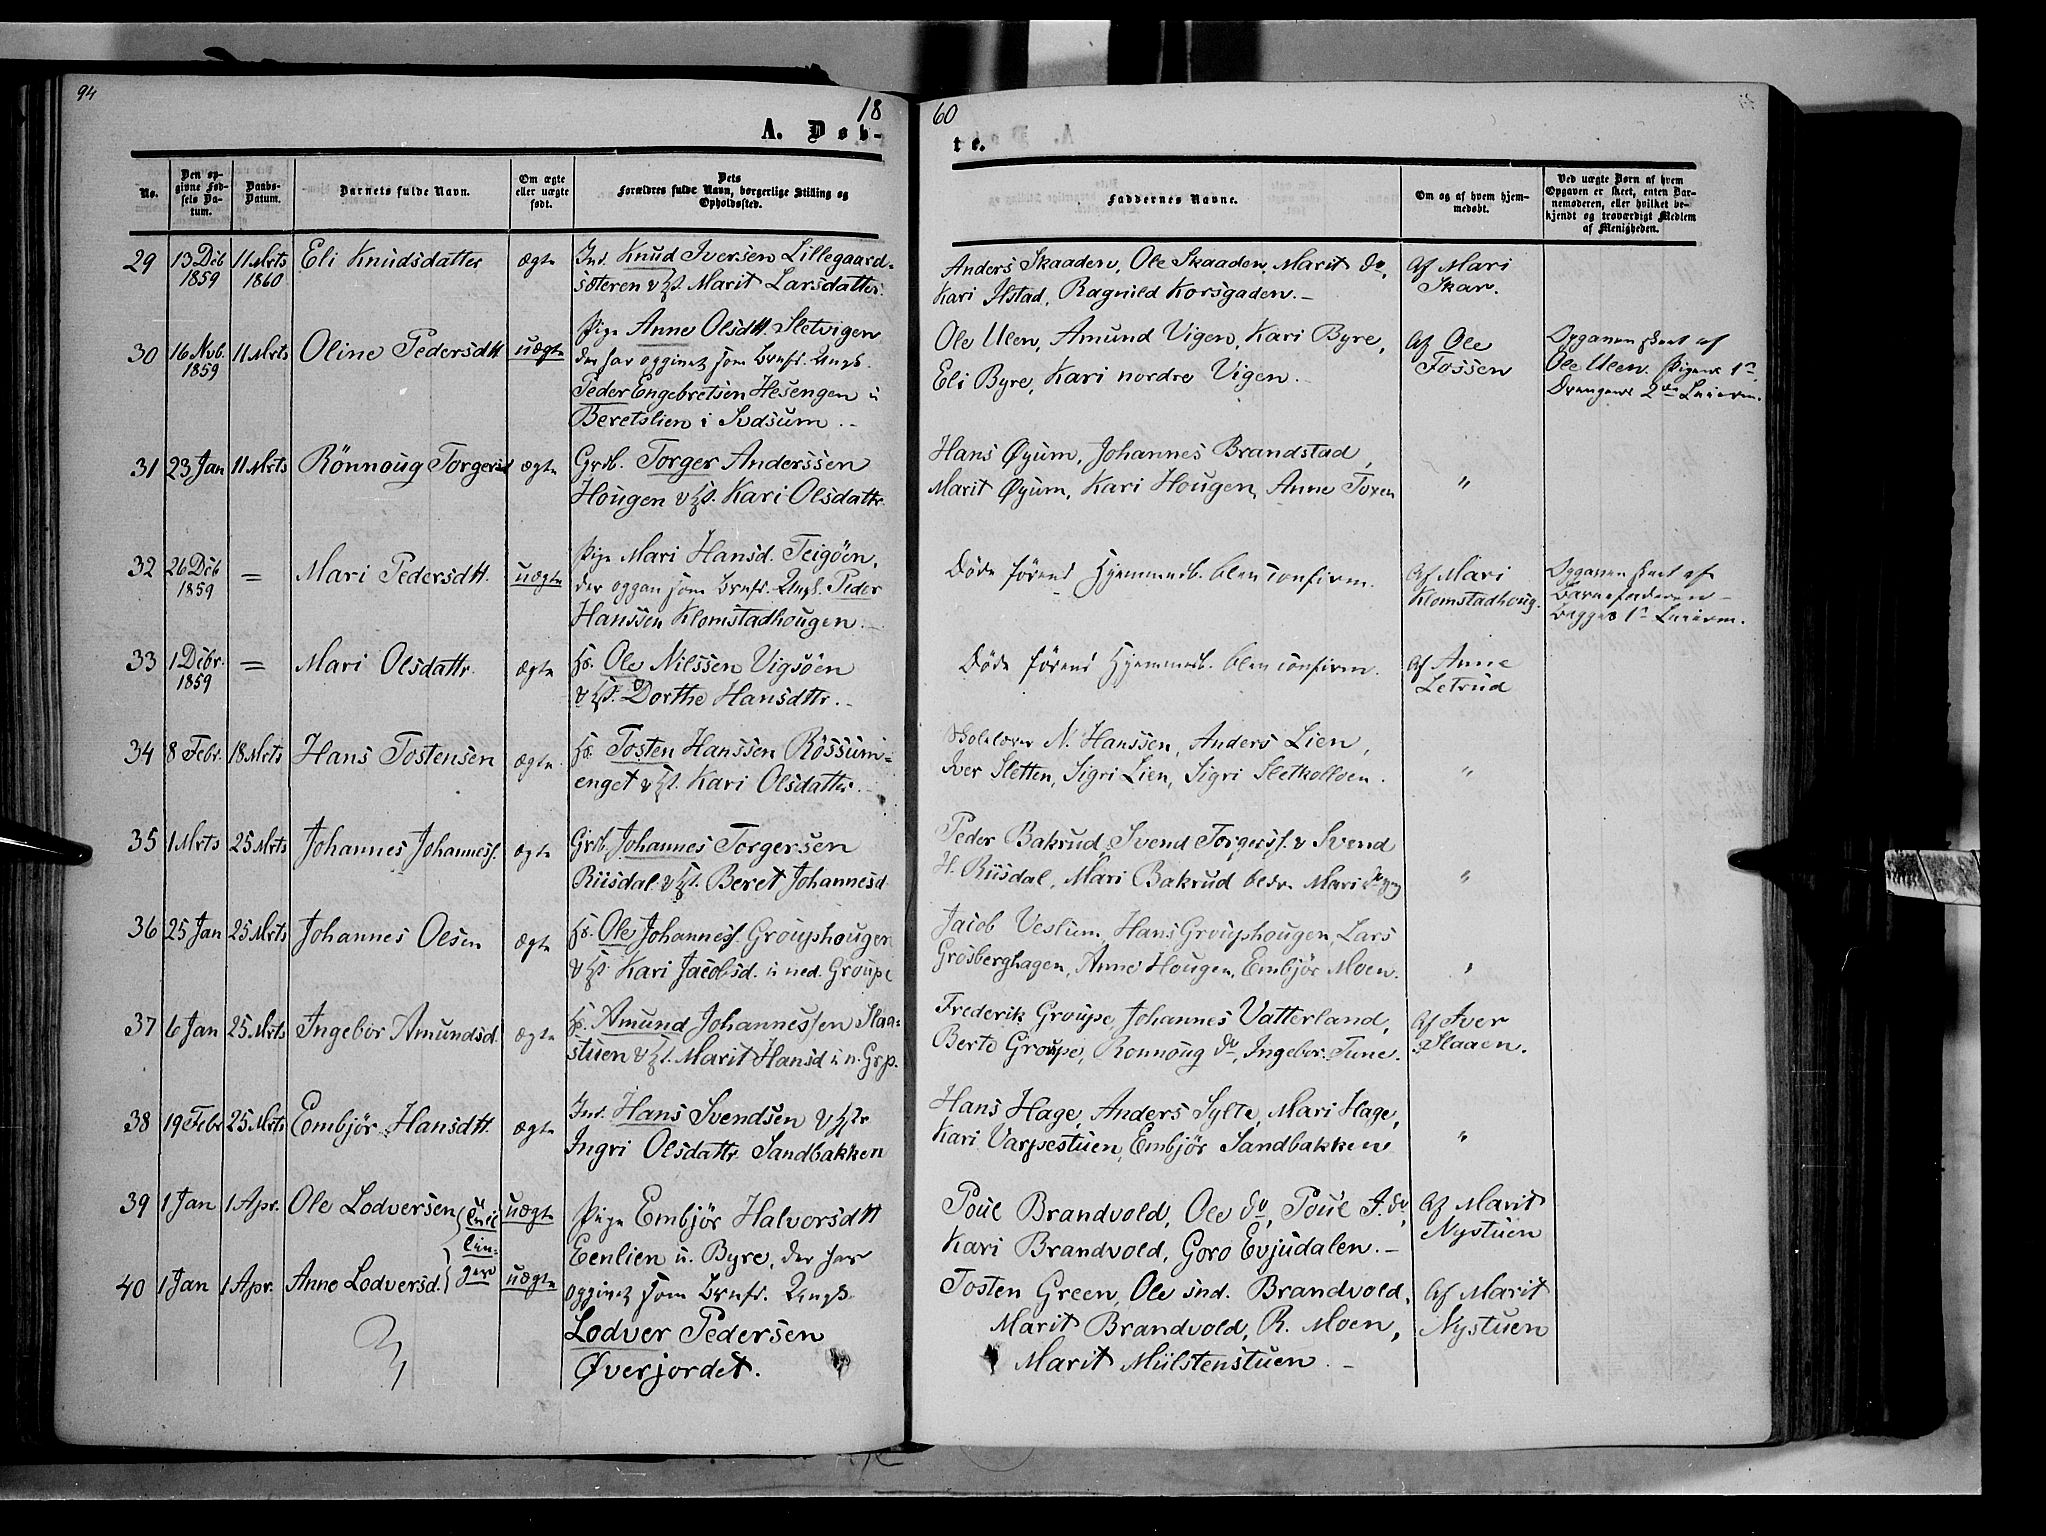 94
18
60
A. Døb-
te.
No.
Den op-
givne Fød-
sels Da-
tum.
Daabs-
Datum.
Barnets fulde Navn.
Om ægte
eller uægte
født.
Dets
Forældres fulde Navn, borgerlige Stilling og
Opholdssted.
Faddernes Navne.
Om og af hvem hjem-
medøbt.
Ved uægte Børn af hvem
Opgaven er skeet, enten Bar-
nemoderen, eller hvilket be-
kjendt og troværdigt Medlem
af Menigheden.
29 13 Dcb 1859 11 Mrts 1860 Eli Knudsdatter ægte
Ind. Knud Iversen Lillegaard-
sæteren & H. Marit Larsdatter.
Anders Skaaden, Ole Skaaden, Marit do,
Kari Ilstad, Ragnild Korsgaden.
Af Mari
Skar.
30 16 Nvb. 1859 11 Mrts Oline Pedersdtt uægte
Pige Anne Olsdtt. Sletvigen
der har opgivet som Brnfr. Ungk.
Peder Engebretsen Hesengen u
Beretslien i Svdsum.
Ole Ulen, Amund Vigen, Kari Byre,
Eli Byre, Kari nordre Vigen.
Af Ole
Fossen
Opgaven skeet af
Ole Ulen. Pigens 1te
Drengens 2den Leierm.
31 23 Jan 11 Mrts Rönnoug Torgersd ægte
Grdb. Torger Anderssen
Hougen & H. Kari Olsdattr.
Hans Øyum, Johannes Brandstad,
Marit Øyum, Kari Hougen, Anne Toxen
"
32 26 Dcb 1859 = Mari Pedersdtt. uægte
Pige Mari Hansd. Teigöen,
der opgav som Brnfr. Ungk. Peder
Hanssen Klomstadhougen.
Døde førend Hjemmedb. blev confirm.
Af Mari
Klomstadhoug.
Opgaven skeet af
Barnefaderen
Begges 1te Leierm.
33 1 Dcbr. 1859 = Mari Olsdattr. ægte
Hs. Ole Nilssen Vigsöen
& H. Dorthe Hansdttr.
Døde førend Hjemmedb. blev confirm.
Af Anne
Letrud
34 8 Febr. 18 Mrts Hans Tostensen ægte
Hs. Tosten Hanssen Rössum-
enget & H. Kari Olsdatter.
Skolelærer N. Hanssen, Anders Lien,
Iver Sletten, Sigri Lien, Sigri Sletkolloen.
"
35 1 Mrts 25 Mrts Johannes Johanness. ægte
Grdb. Johannes Torgersen
Riisdal & H. Beret Johannesd
Peder Bakrud, Svend Torgerss. & Svend
H. Riisdal, Mari Bakrud ældr. Mari do yng
"
36 25 Jan 25 Mrts Johannes Olsen ægte
Hs. Ole Johanness. Grouphougen
& H. Kari Jacobsd. u ned. Groupe
Jacob Veslum, Hans Grouphougen, Lars
Grosberghagen, Anne Hougen, Embjör Moen.
"
37 6 Jan 25 Mrts Ingebor Amundsd. ægte
Hs. Amund Johannessen Slaa-
stuen & H. Marit Hansd u n. Grp.
Frederik Groupe, Johannes Vatterland,
Berte Groupe, Ronnoug do, Ingebor Tune.
Af Iver
Slaaen.
38 19 Febr 25 Mrts Eembjör Hansdtt. ægte
Ind. Hans Svendsen & Hstr
Ingri Olsdattr Sandbakken
Hans Hage, Anders Sylte, Mari Hage,
Kari Varpestuen, Embjör Sandbakken
"
39 1 Jan 1 Apr. Ole Lodversen uægte
Tvil
lin-
ger
40 1 Jan 1 Apr. Anne Lodversd. uægte
Pige Embjör Halvorsdtt
Eenlien u. Byre, der har
opgivet som Brnfr. Ungk
Lodver Pedersen
Øverjordet.
Poul Brandvold, Ole do, Poul J. do,
Kari Brandvold, Goro Evjudalen.
Af Marit
Nystuen
Tosten Green, Ole ind. Brandvold,
Marit Brandvold, R. Moen,
Marit Mülstenstuen.
Af Marit
Nystuen